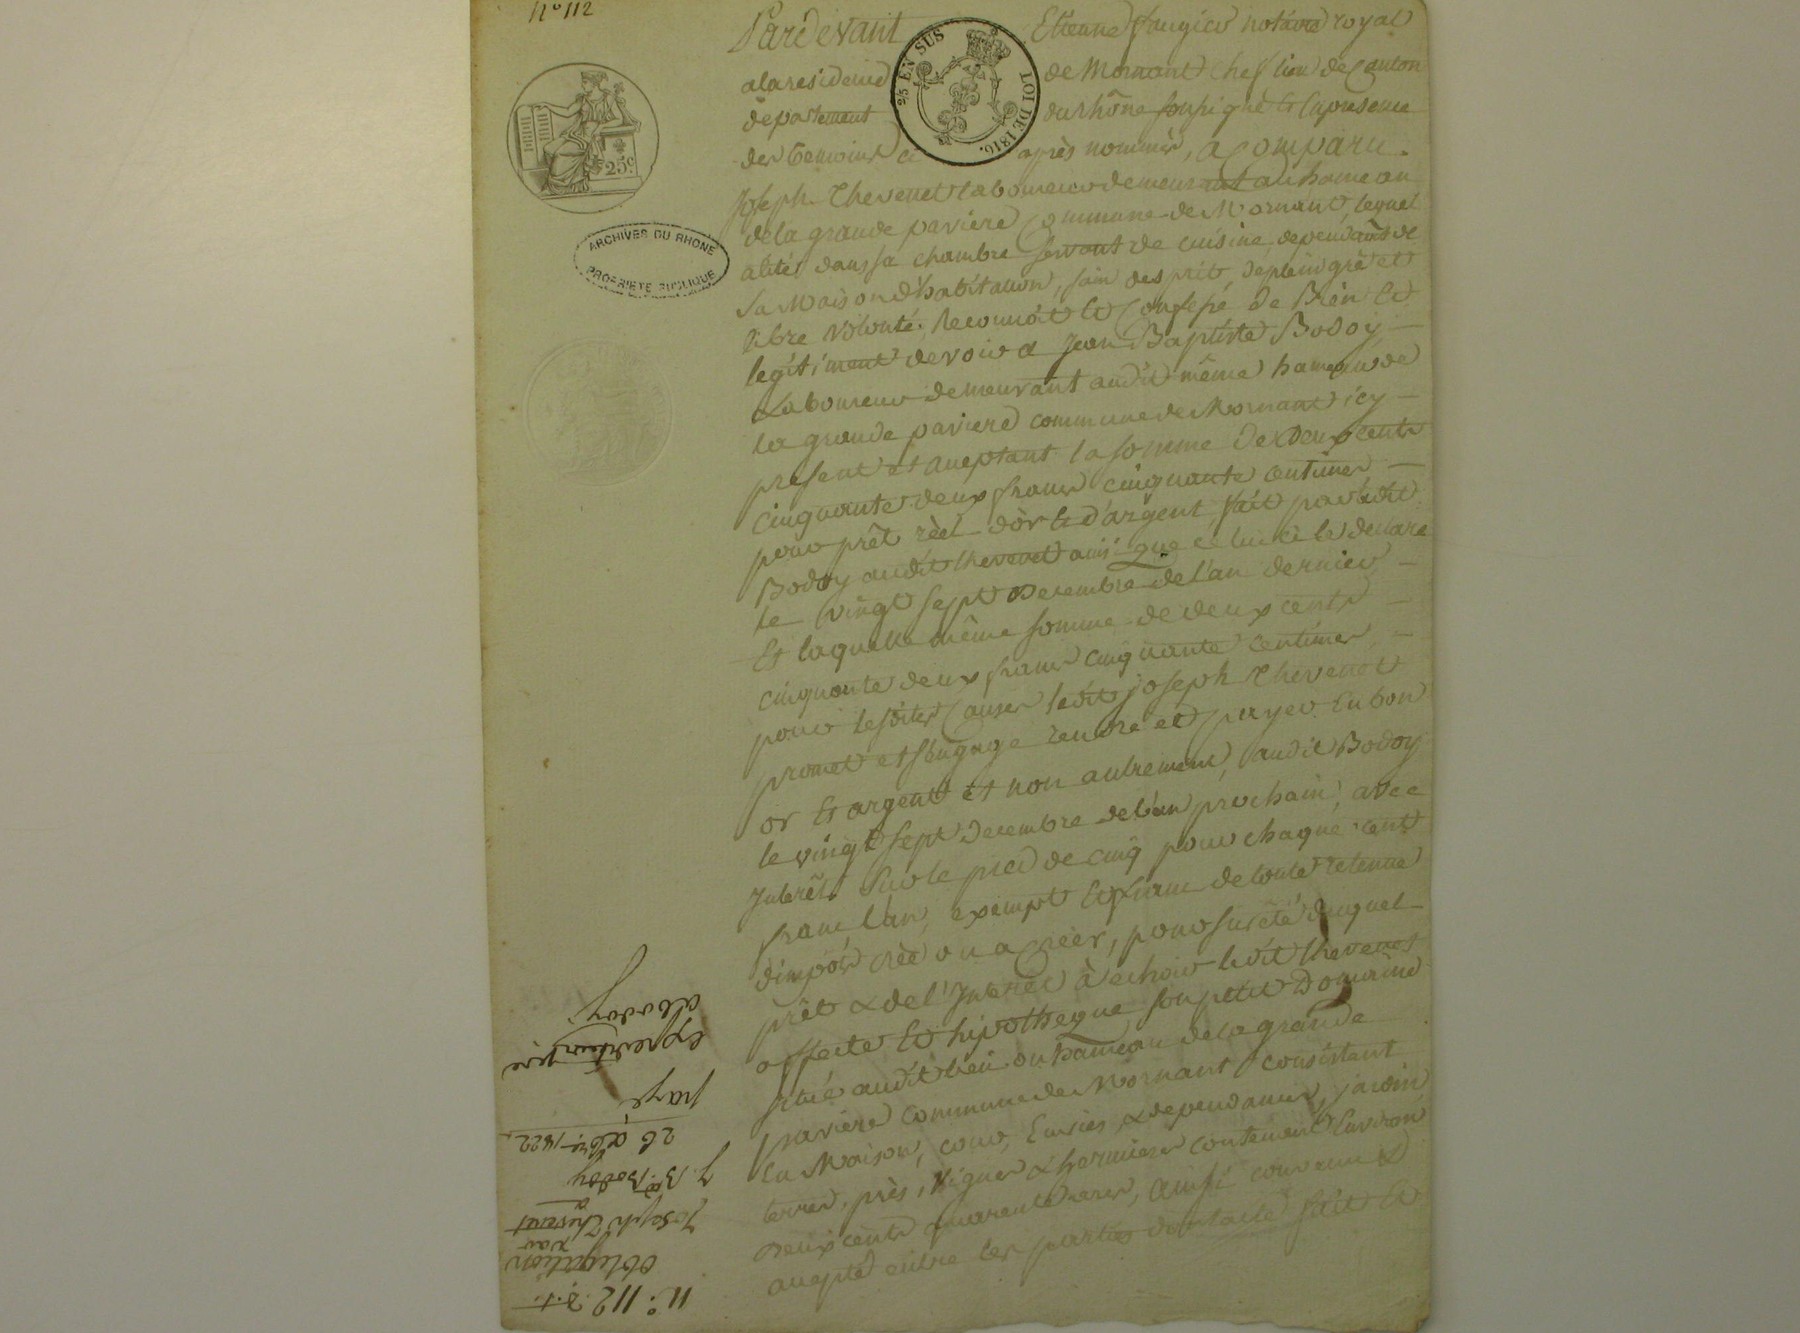 N° 112
Pardevant Etienne faugier notaire royal
2/5 EN SUS LOI DE 1816.
alaresidence de Mornant chef lieu de Canton
25c.
département du rhône soussigné et En presence
des temoins ci après nommés, a Comparu.
Joseph Thevenet laboureur demeurant au hameau
de la grande paviere Commune de Mornant, lequel
ARCHIVES DU RHONE
PROPRIETE PUBLIQUE
alité dans sa chambre servant de cuisine dependante de
sa Maison d'habitation, sain desprit, de plein gré et
libre volonté, Reconnoit et Confessé de Bien et
legitiment devoir a Jean Baptiste Bodoy
Laboureur demeurant audit même hameau de
la grande paviere commune de Mornant icy
present et aceptant la somme de Deux cents
cinquante deux francs cinquante centimes
pour prêt réel d'or et d'argent, fait par ledit
Bodoy audit thevenet ainsi que celui ci le déclare
le vingt sept Decembre de l'an dernier
Et laquelle même somme de deux cents
cinquante deux francs cinquante centimes
pour lesdites Causes ledit joseph Thevenet
promet et s'engage rendre et payer En bon
or Et argent et non autrement, audit Bodoy
le vingt sept Decembre de l'an prochain, avec
Interêts sur le pied de cinq pour chaque cent
franc l'an, exempt Et franc de toute retenue
d'impôts créé ou a Créer, pour sureté duquel
prêt & de l'Interêt à echoir ledit thevenet
affecte Et hipotheque son petit Domaine
situé audit lieu ou hameau de la grande
paviere commune de Mornant consistant
En Maison, cour, Ecuries & dependances, jardin
terres, près, vignes & hermieres contenant Environ
deux cents quarante ares, ainsi convenu &
accepté entre les parties dont acte fait Et
N°. 112 d.t.
obligation
par
Joseph Thevenet
a
J. Bte. Bodoy
26 Xbre. 1822.
payé
expedition 1ere
a bodoy